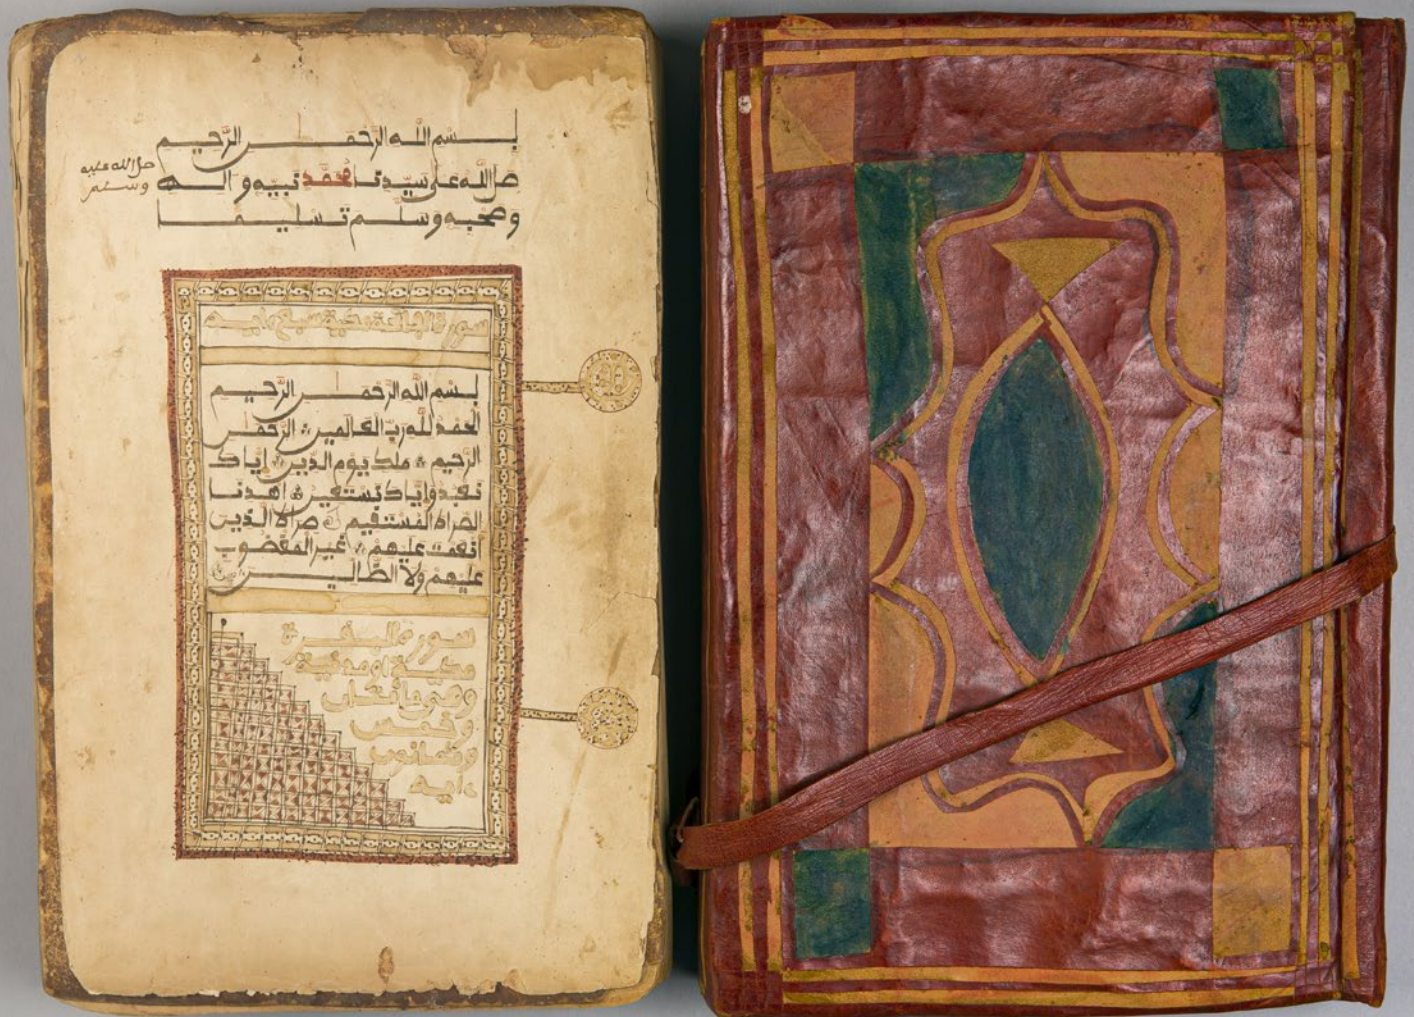 بسم الله الرحمن الرحيم
صل الله على سيدنا محمد نبيه واله
وصحبه وسلم تسليما
صل الله عليه
وسلم
سورة الفاتحة مكية سبع ءايه
بسم الله الرحمن الرحيم
الحمد لله رب العالمين الرحمن
الرحيم ملك يوم الدين اياك
نعبد واياك نستعين اهدنا
الصراط المستقيم صراط الذين
انعمت عليهم غير المغضوب
عليهم ولا الضالين
سورة البقرة
مكية او مدنية
وهي مائتان
وخمس
وثمانون
ءايه